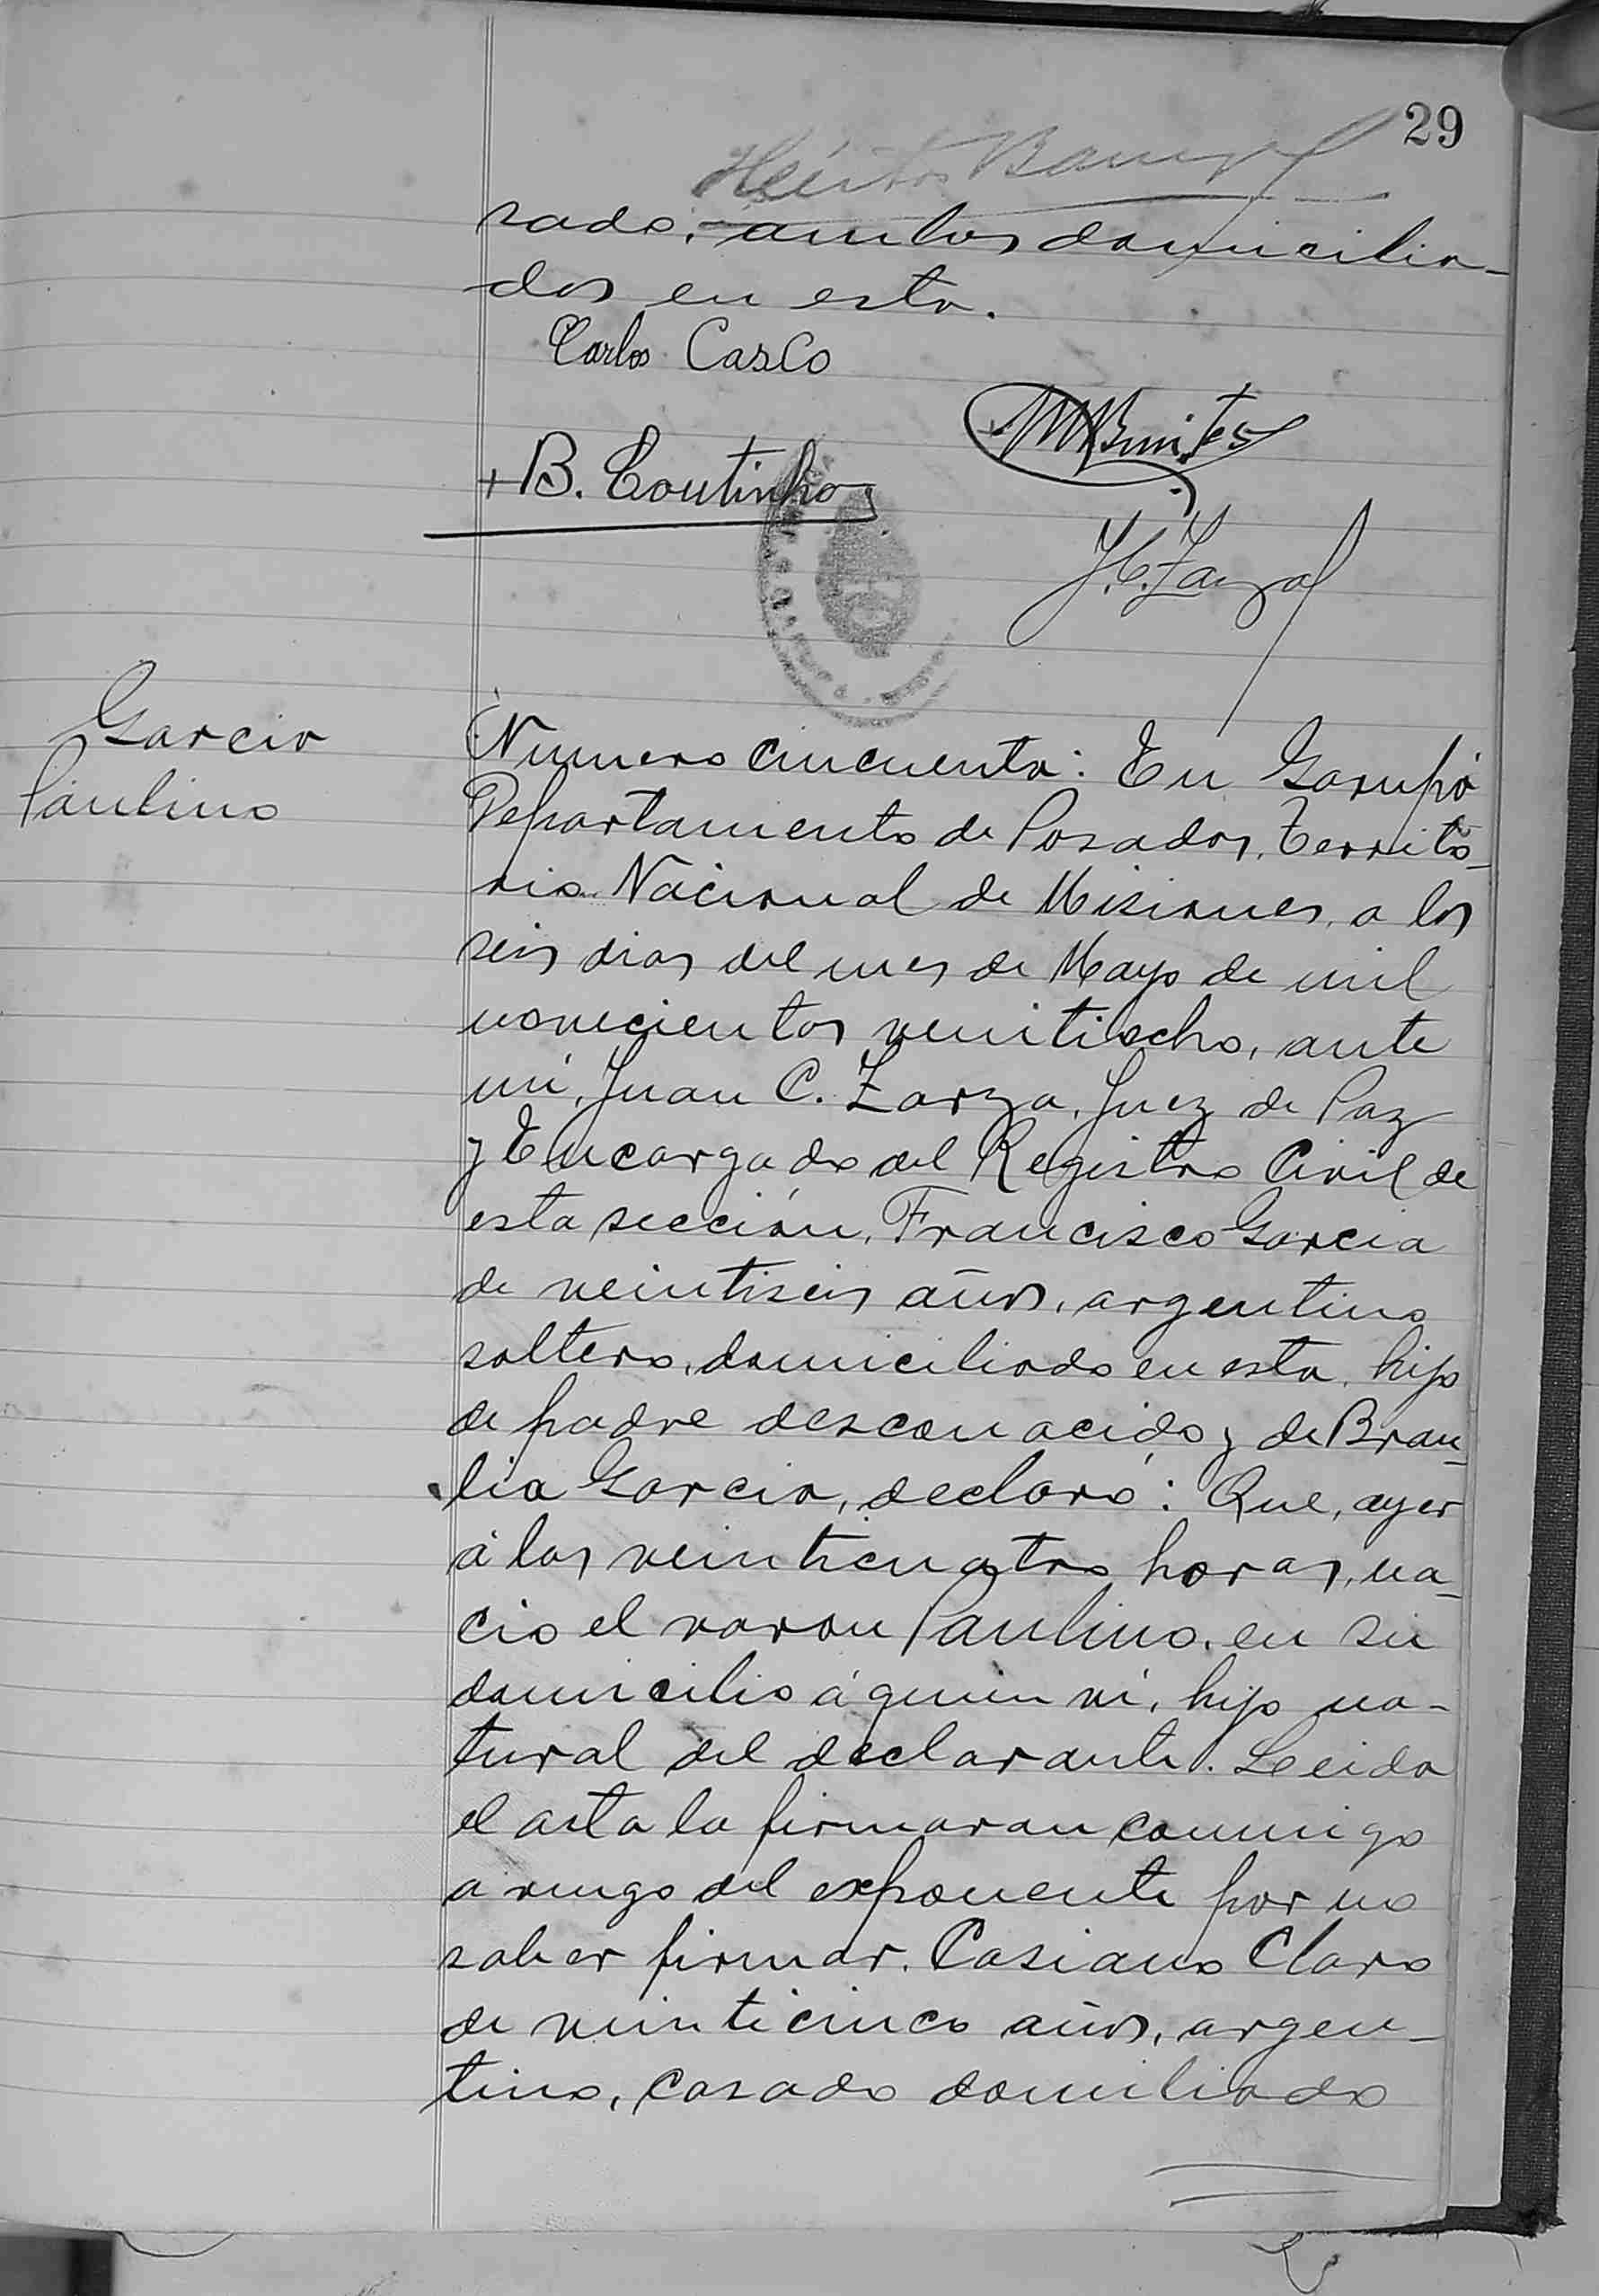 29
sado, ambos domicilia-
dos en esta.
Carlos Casco
MBenitez
+ B. Coutinho
J. C. Zarza
Garcia
Paulino
Numero cincuenta: En Garupá
Departamento de Posadas, Territo-
rio Nacional de Misiones, a los
seis dias del mes de Mayo de mil
novecientos veintiocho, ante
mi, Juan C. Zarza, Juez de Paz
y Encargado del Registro Civil de
esta sección, Francisco Garcia
de veintiseis años, argentino
soltero, domiciliado en esta, hijo
de padre desconocido y de Brau-
lia Garcia, declaró: Que, ayer
á las veinticuatro horas, na-
cio el varon Paulino, en su
domicilio á quien ví, hijo na-
tural del declarante. Leida
el acta la firmaron conmigo
a ruego del exponente por no
saber firmar. Casiano Claro
de veinticinco años, argen-
tino, casado domiliado